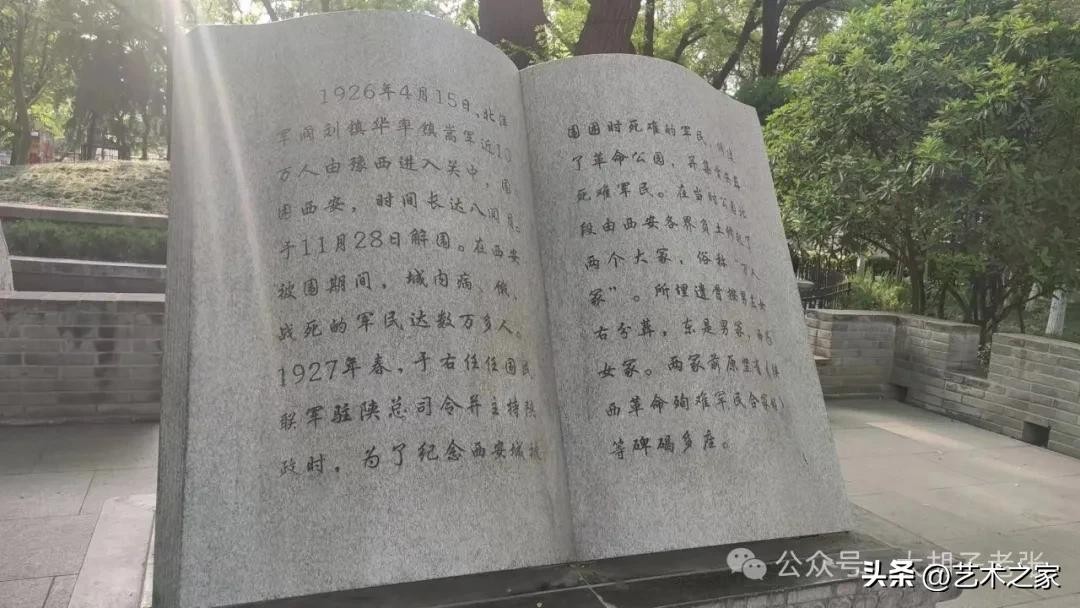 1926年4月15日、北洋
军阀刘镇华率镇嵩军近10
万人由豫西进入关中，围
困西安，时间长达八阅月。
于11月28日解围。在西安
被围期间，城内病、饿、
战死的军民达数万多人。
1927年春，于右任任国民
联军驻陕总司令并主持陕
政时，为了纪念西安城被
围困时死难的军民，修建
了革命公园，并集
死难军民。在当时公园北
段由西安各界负土修筑了
两个大冢，俗称“万人
冢”。所埋遗骨按男左女
右分葬，东是男冢，西是
女冢。两冢前原竖有《陕
西革命殉难军民合冢
等碑碣多座。
公众号·大胡子老张
头条 @艺术之家